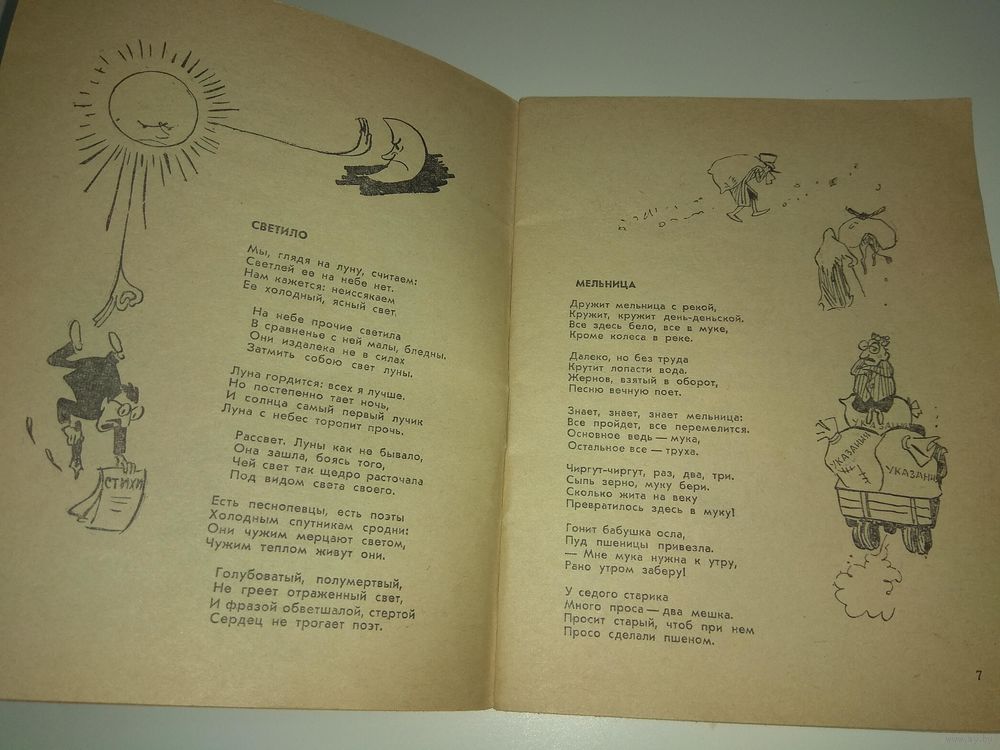 СТИХИ
СВЕТИЛО
Мы, глядя на луну, считаем:
Светлей ее на небе нет.
Нам кажется: неиссякаем
Ее холодный, ясный свет.
На небе прочие светила
В сравненье с ней малы, бледны.
Они издалека не в силах
Затмить собою свет луны.
Луна гордится: всех я лучше.
Но постепенно тает ночь,
И солнца самый первый лучик
Луна с небес торопит прочь.
Рассвет. Луны как не бывало,
Она зашла, боясь того,
Чей свет так щедро расточала
Под видом света своего.
Есть песнопевцы, есть поэты
Холодным спутникам сродни:
Они чужим мерцают светом,
Чужим теплом живут они.
Голубоватый, полумертвый,
Не греет отраженный свет,
И фразой обветшалой, стертой
Сердец не трогает поэт.
МЕЛЬНИЦА
Дружит мельница с рекой,
Кружит, кружит день-деньской.
Все здесь бело, все в муке,
Кроме колеса в реке.
Далеко, но без труда
Крутит лопасти вода.
Жернов, взятый в оборот,
Песню вечную поет.
Знает, знает, знает мельница:
Все пройдет, все перемелится.
Основное ведь — мука,
Остальное все — труха.
Чиргут-чиргут, раз, два, три.
Сыпь зерно, муку бери.
Сколько жита на веку
Превратилось здесь в муку!
Гонит бабушка осла,
Пуд пшеницы привезла.
— Мне мука нужна к утру,
Рано утром заберу!
У седого старика
Много проса — два мешка.
Просит старый, чтоб при нем
Просо сделали пшеном.
УКАЗАНИЯ
УКАЗАНИЯ
7